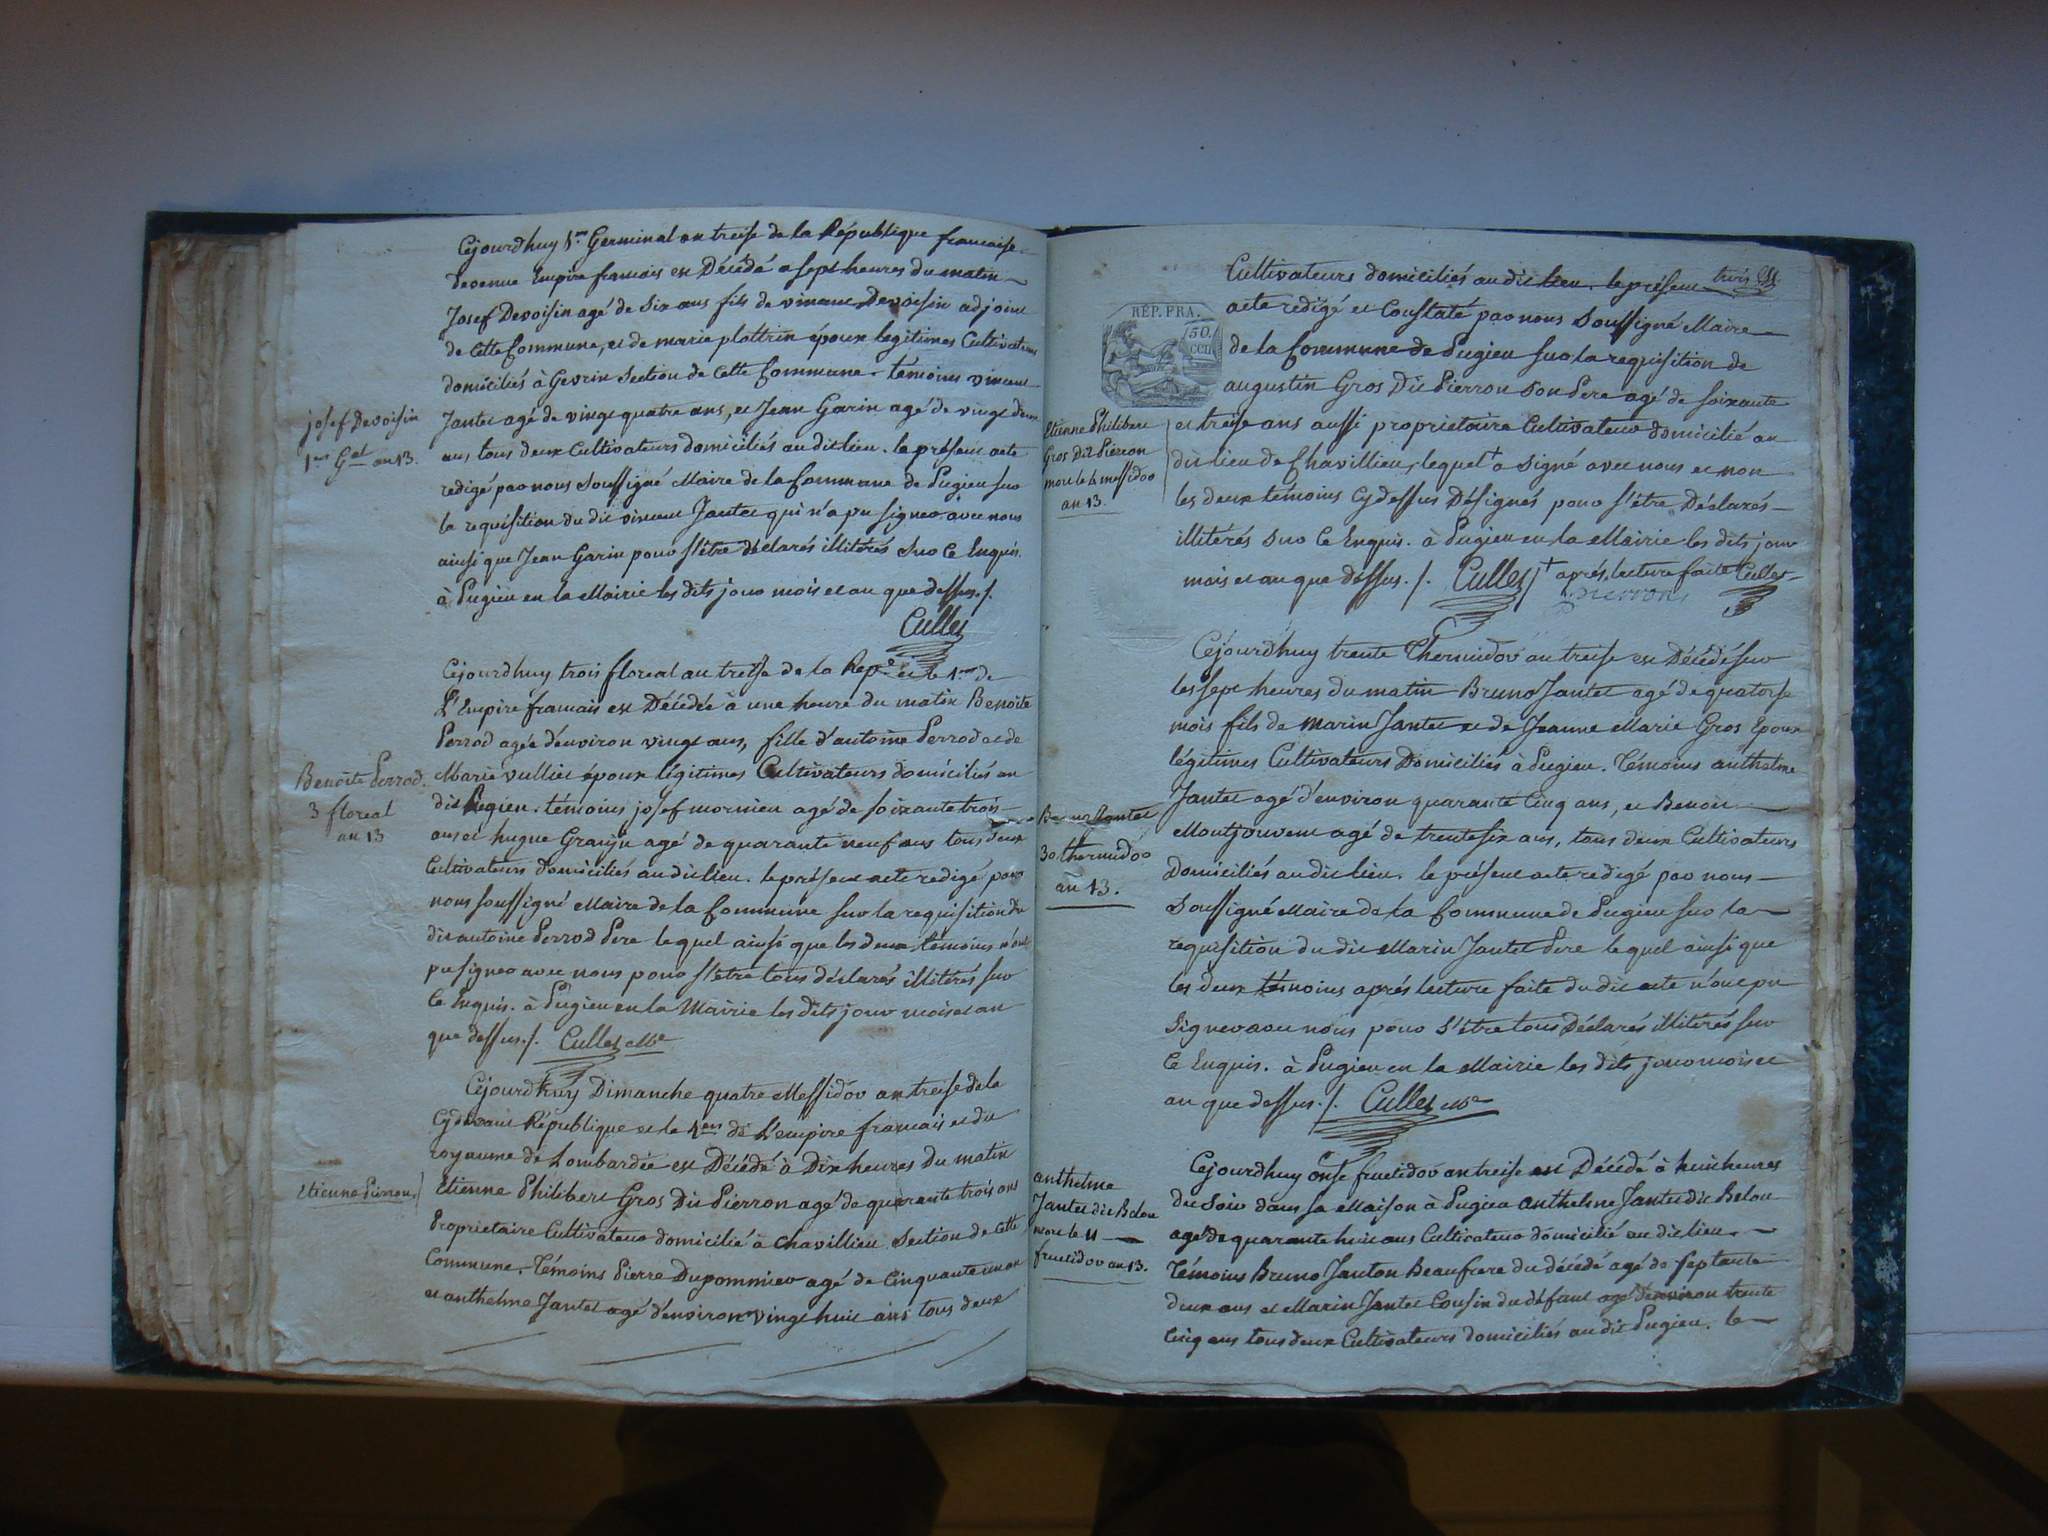 Cejourdhuy 1.er Germinal an treise de la République francaise
devenue Empire francais est Décédé a sept heures du matin
Josef Devoisin agé de Six ans fils de vincent Devoisin adjoint
de Cette Commune, et de marie plattrin époux legitimes Cultivateurs
domiciliés à Gevrin Section de Cette Commune. témoins vincent
Jantet agé de vingt quatre ans, et Jean Garin agé de vingt deux
josef Devoisin
1.er G.al an 13.
ans tous deux Cultivateurs domiciliés au dit lieu. le présent acte
redigé par nous Soussigné Maire de la Commune de Pugieu sur
la requisition du dit vincent Jantet qui n'a pu signer avec nous
ainsi que Jean Garin pour s'être déclarés illiterés Sur Ce Enquis.
à Pugieu en la Mairie les dits jour mois et an que dessus./.
Cullet
Cejourdhuy trois floreal an treise de la Rep.e et le 1.er de
L'Empire francais est Décédée à une heure du matin Benoite
Perrod agée d'environ vingt ans, fille d'antoine Perrod et de
Benoite Perrod.
3 floreal
an 13
Marie vulliet époux légitimes Cultivateurs domiciliés au
dit Pugieu. témoins josef mornieu agé de soixante trois
ans et hugue Granju agé de quarante neuf ans tous deux
Cultivateurs domiciliés au dit lieu. le présent acte redigé par
nous soussigné Maire de la Commune sur la requisition du
dit antoine Perrod Pere lequel ainsi que les deux témoins n'ont
pu signer avec nous pour s'être tous déclarés illiterés sur
Ce Enquis. à Pugieu en la Mairie les dits jour mois et an
que dessus./. Cullet M.e
Cejourdhuy Dimanche quatre Messidor an treise de la
Cydevant République et le 1.ers de L'empire francais et du
royaume de Lombardie est Décédé à Dix heures Du matin
Etienne Pierron.
Etienne Philibert Gros Dit Pierron agé de quarante trois ans
Proprietaire Cultivateur domicilié à Chavillieu Section de Cette
Commune. Témoins Pierre Dupommier agé de Cinquante un an
et anthelme Jantet agé d'environ vingt huit ans tous deux
Cultivateurs domiciliés au dit lieu. le présent
REP. FRA.
50.
CEN
acte redigé et Constaté par nous Soussigné Maire
de la Commune de Pugieu sur la requisition de
augustin Gros Dit Pierron son Pere agé de soixante
Etienne Philibert
Gros Dit Pierron
mort le 4 messidor
an 13.
et treise ans aussi proprietaire Cultivateur domicilié au
dit lieu de Chavillieu, lequel + a Signé avec nous et non
les deux témoins Cydessus Désignés pour s'être Déclarés
illiterés Sur Ce Enquis. à Pugieu en la Mairie les dits jour
mois et an que dessus./. Cullet + aprés lecture faite Cullet
pierron
Cejourdhuy trente Thermidor an treise est Décédé sur
les sept heures du matin Bruno Jantet agé de quatorse
mois fils de Marin Jantet et de Jeanne Marie Gros Epoux
légitimes Cultivateurs Domiciliés à Pugieu. Témoins anthelme
Jantet agé d'environ quarante Cinq ans, et Benoit
Bruno Jantet
30 thermidor
an 13.
Montjouvent agé de trente six ans, tous deux Cultivateurs
Domiciliés au dit lieu. le présent acte redigé par nous
Soussigné Maire de la Commune de Pugieu sur la
requisition du dit Marin Jantet Pere lequel ainsi que
les deux témoins aprés lecture faite du dit acte n'ont pu
signer avec nous pour s'être tous Déclarés illiterés sur
Ce Enquis. à Pugieu en la Mairie les dits jour mois et
an que dessus./. Cullet M.e
Cejourdhuy onse fructidor an treise est Décédé à huit heures
anthelme
Jantet dit Belou
mort le 11
fructidor an 13.
du Soir dans sa Maison à Pugieu anthelme Jantet dit Belou
agé de quarante huit ans Cultivateur domicilié au dit lieu.
Témoins Bruno Janton Beaufrere du décédé agé de septante
deux ans et Marin Jantet Cousin du défunt agé d'environ trente
Cinq ans tous deux Cultivateurs domiciliés au dit Pugieu. le